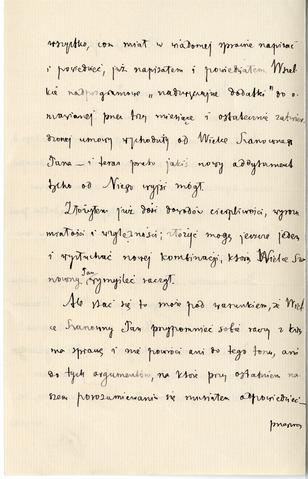 wszystko, com miał w wiadomej sprawie napisać
i powiedzieć, już napisałem i powiedziałem. Wszel-
kie nadprogramowe „nadzwyczajne dodatki” do o-
mawianej przez trzy miesiące i ostatecznie zatwier-
dzonej umowy wychodziły od Wielce Szanownego
Pana – i teraz przeto jakiś nowy addytament
tylko od Niego wyjść mógł.
Złożyłem już dość dowodów cierpliwości, wyrozu-
miałości i względności; złożyć mogę jeszcze jeden
i wysłuchać nowej kombinacji, którą Wielce Sza-
nowny Pan wymyśleć raczył.
Ale stać się to może pod warunkiem, że Wiel-
ce Szanowny Pan przypomnieć sobie raczy z kim
ma sprawę i nie powróci ani do tego tonu, ani
do tych argumentów, na które przy ostatniem na-
szem porozumiewaniu się musiałem odpowiedzieć